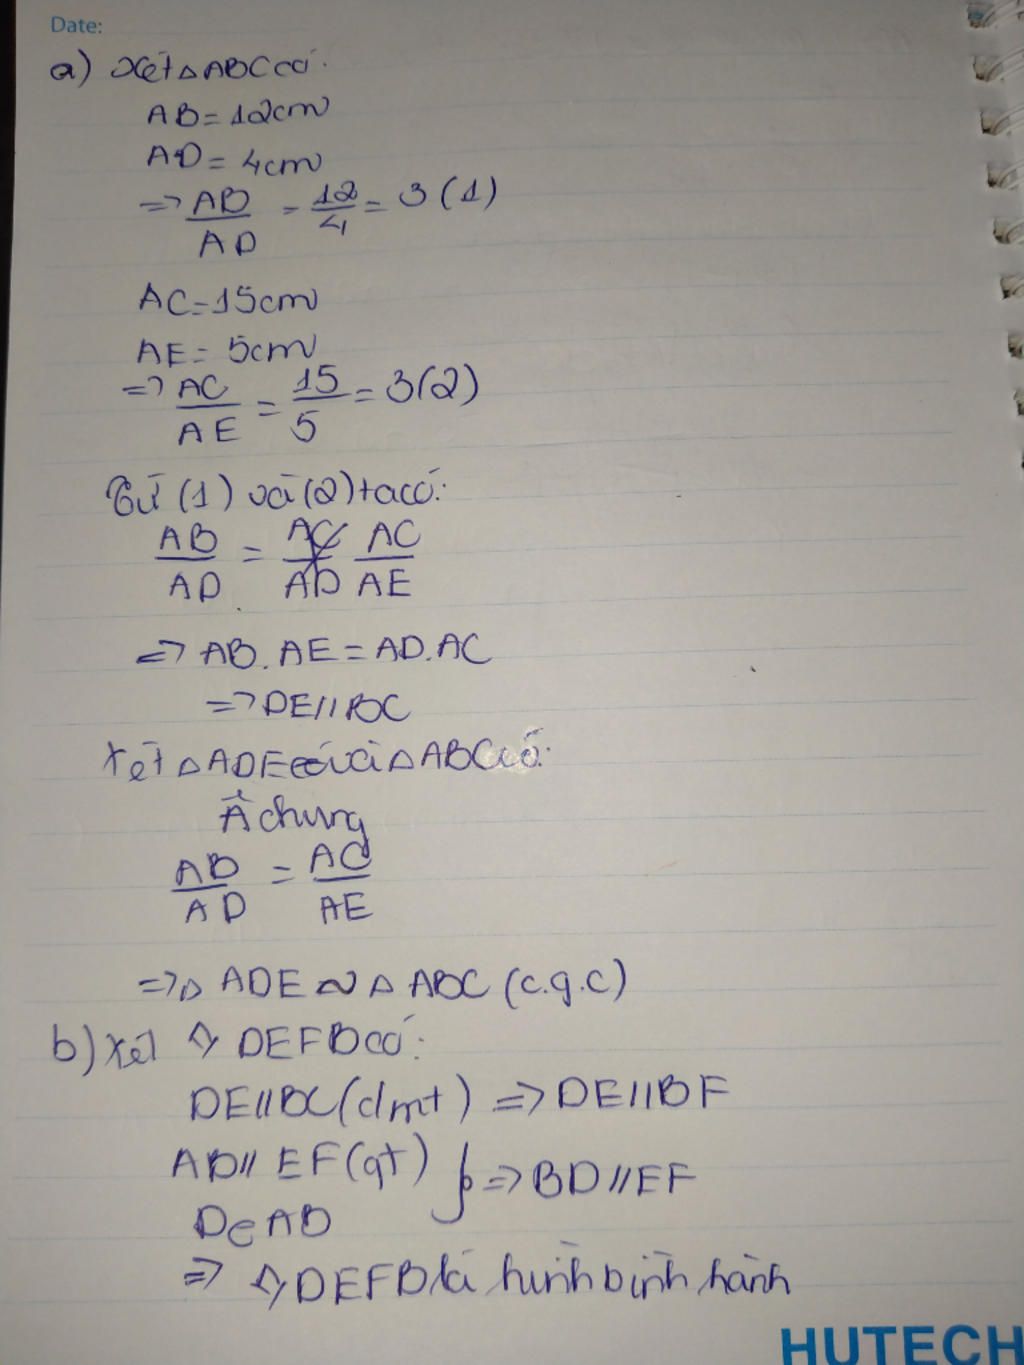 Date:
a) Xét △ABC có:
AB = 12cm
AD = 4cm
=> AB/AD = 12/4 = 3 (1)
AC = 15cm
AE = 5cm
=> AC/AE = 15/5 = 3 (2)
Từ (1) và (2) ta có:
AB/AD = AC/AE
=> AB.AE = AD.AC
=> DE//BC
Xét △ADE và △ABC có:
Â chung
AB/AD = AC/AE
=> △ ADE ~ △ ABC (c.g.c)
b) Xét ◇ DEFB có:
DE//BC (cmt) => DE//BF
AB// EF (gt) } => BD//EF
D∈AB
=> ◇DEFB là hình bình hành
HUTECH